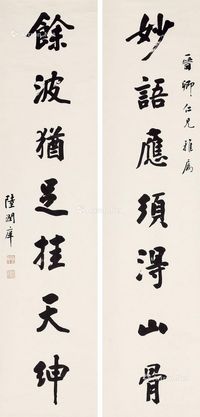 晉卿仁兄雅屬
妙語應須得山骨
餘波猶足挂天紳
陸潤庠